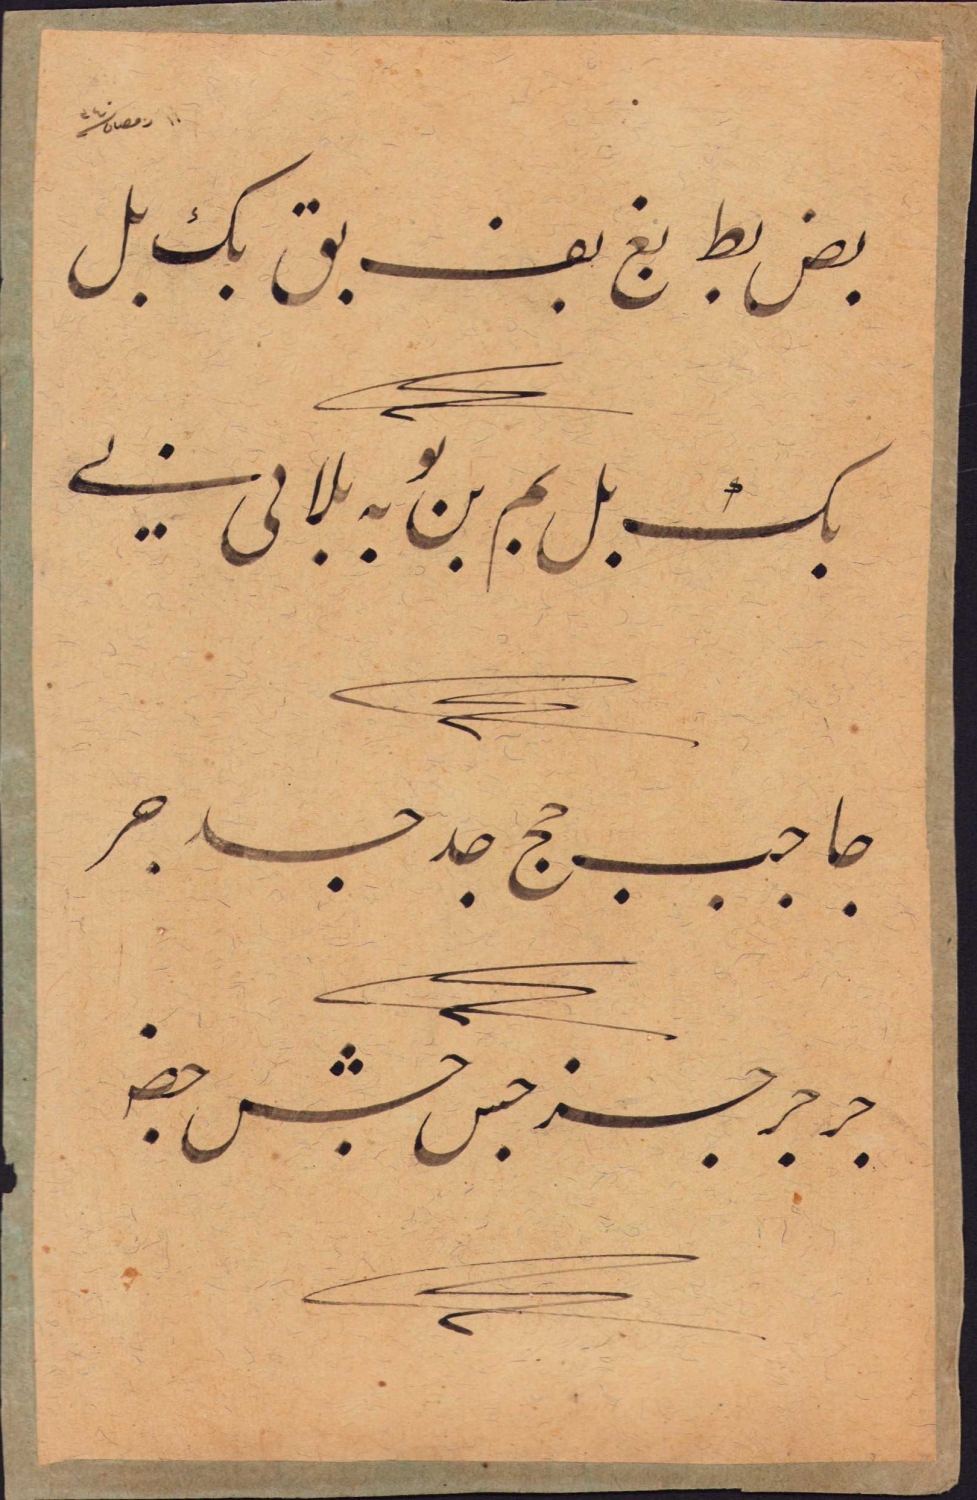 ١١ رمضان
بض بط بغ بف بق بك بل
بك بل بم بن بو به بلا بى يى
جا جب جج جد جد جر
جر جر جز جس جش جض